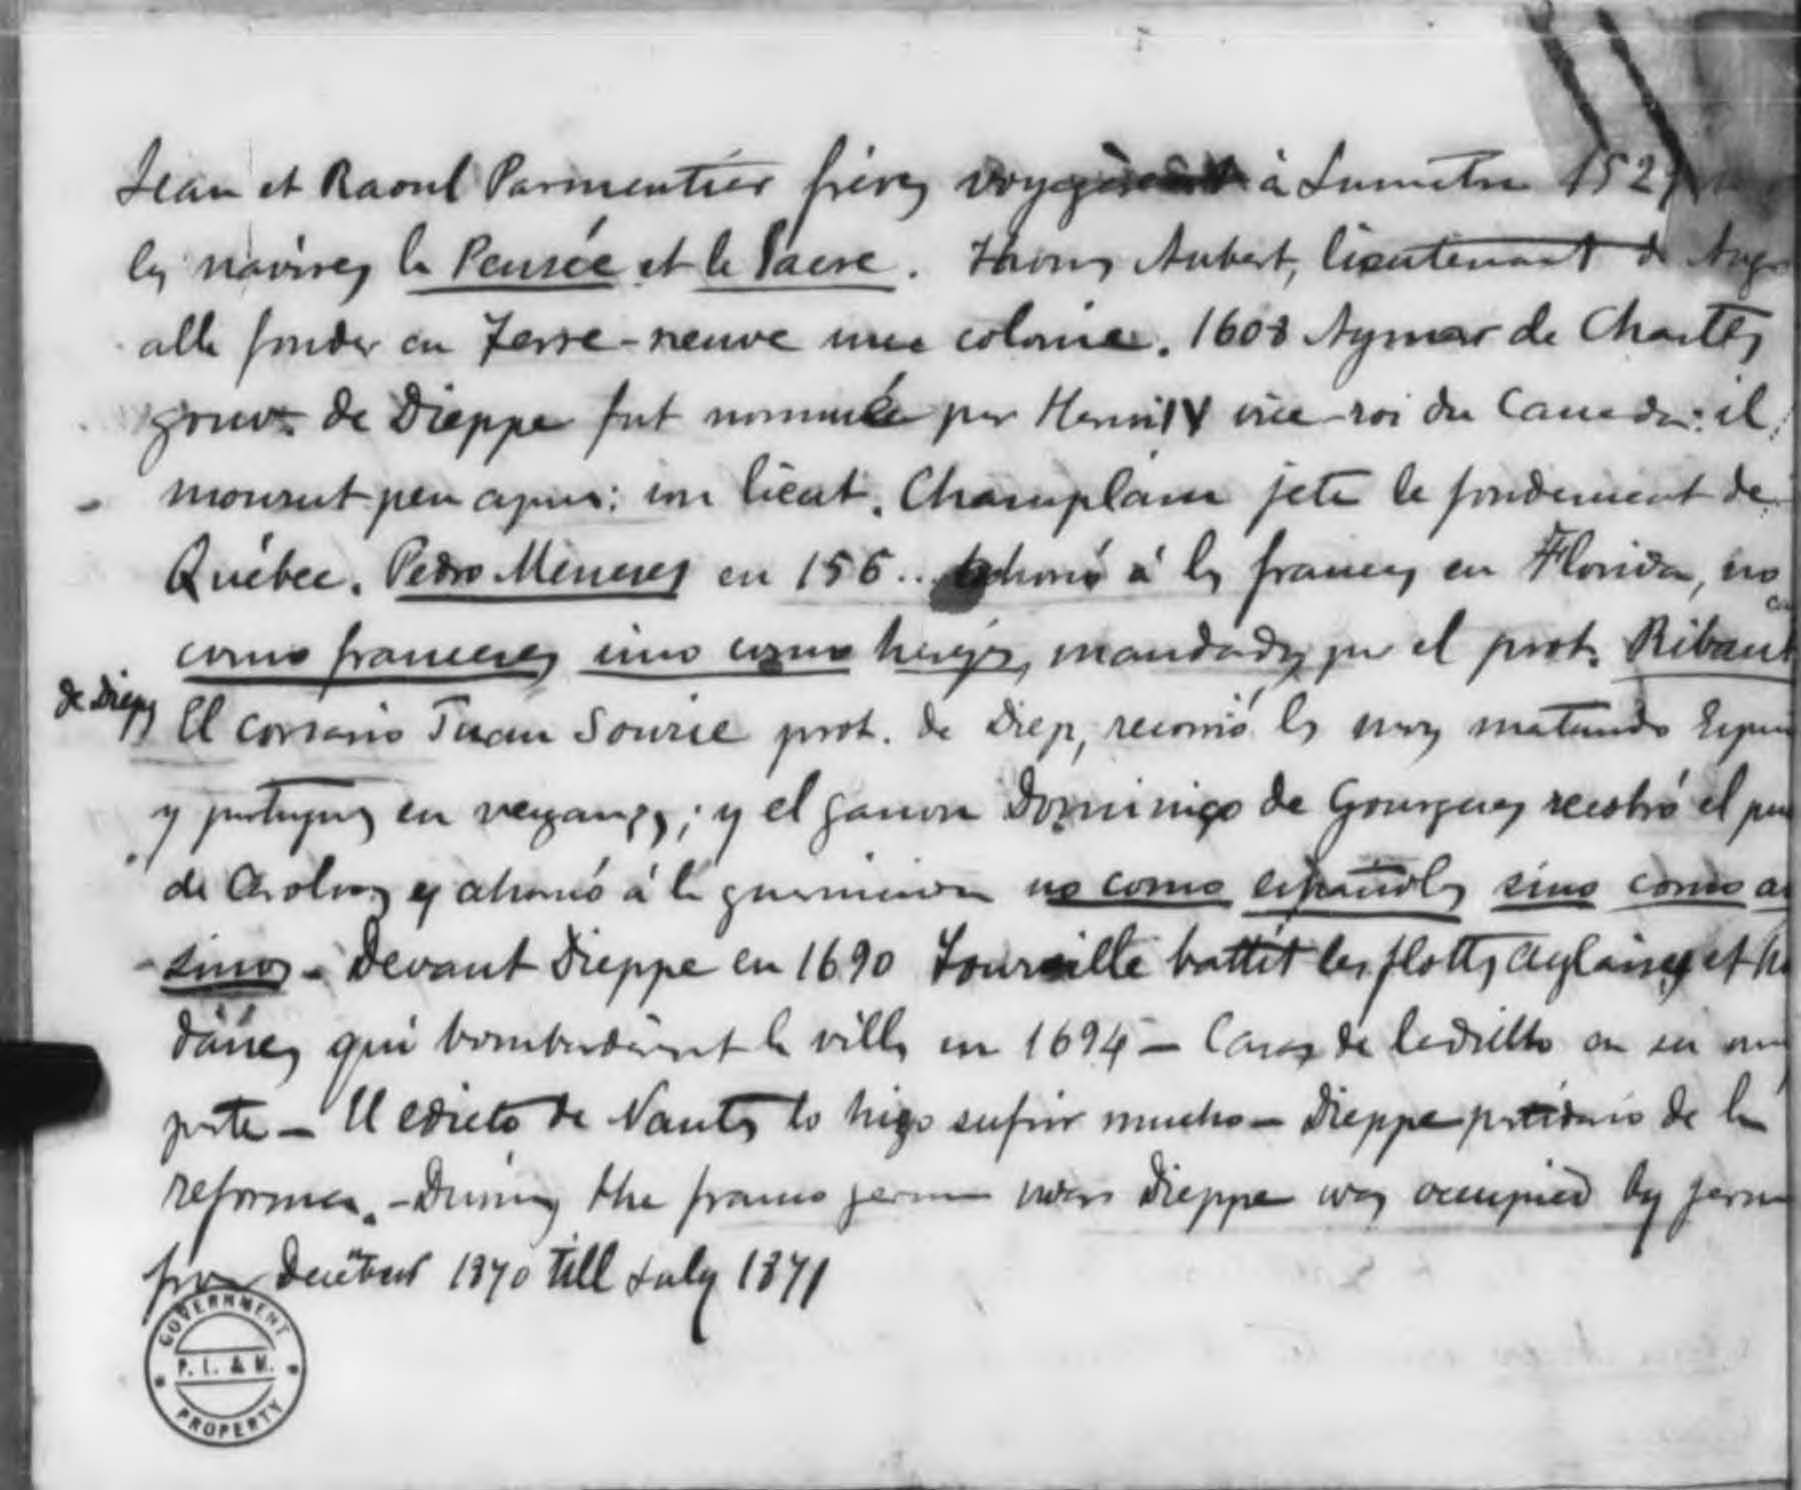 Jean et Raoul Parmentier frères voyagèrent à Sumatra 152
les navires la Pensée et le Sacre. Thomas Aubert, lieutenant de Ango
alla fonder en Terre-neuve une colonie. 1608 Aymar de Chartes
gouvr de Dieppe fut nommée par Henri IV vice-roi du Canada: il
mourut peu après: son lieut. Champlain jeta le fondement de
Québec. Pedro Meneses en 156.. ahorcó á los franceses en Florida, no
como franceses sino como herejes, mandados por el prot. Ribaut
de Diepe
El corsario Juan Sourie prot. de Diep, recorrió los mares matando
y portugueses en venganza; y el gascon Dominico de Gourgues recobró el
de Carolina y ahorcó á la guarnicion no como españoles sino como a
sinos - Devant Dieppe en 1690 Tourville battit les flottes anglaises et ho
daises qui bombardèrent la ville en 1694 - Casas de ladrillo en su
parte - El edicto de Nantes lo hizo sufrir mucho - Dieppe partidario de la
reforma. - During the franco german war Dieppe was occupied by
from December 1870 till July 1871
GOVERNMENT
P. L. & M.
PROPERTY